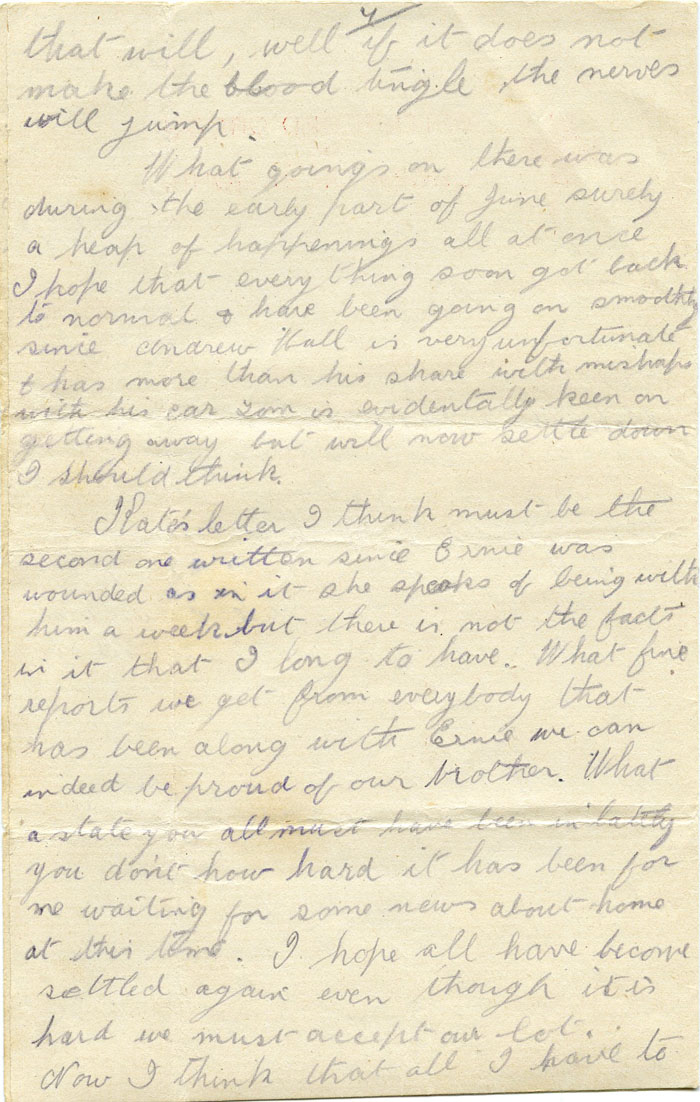 that will, well if it does not
make the blood tingle, the nerves
will jump.
What goings on there was
during the early part of June surely
a heap of happenings all at once
I hope that everything soon got back
to normal & have been going on smoothly
since Andrew Hall is very unfortunate
& has more than his share with mishaps
with his car Tom is evidentally keen on
getting away but will now settle down
I should think.
Kate's letter I think must be the
second one written since Ernie was
wounded as in it she speaks of being with
him a week but there is not the facts
in it that I long to have. What fine
reports we get from everybody that
has been along with Ernie we can
indeed be proud of our brother. What
a state you all must have been in lately
you don't how hard it has been for
me waiting for some news about home
at this time. I hope all have become
settled again even though it is
hard we must accept our lot.
Now I think that all I have to